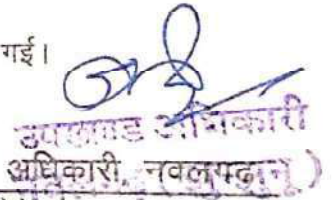 गई।
उपखण्ड अधिकारी
अधिकारी नवलगढ़